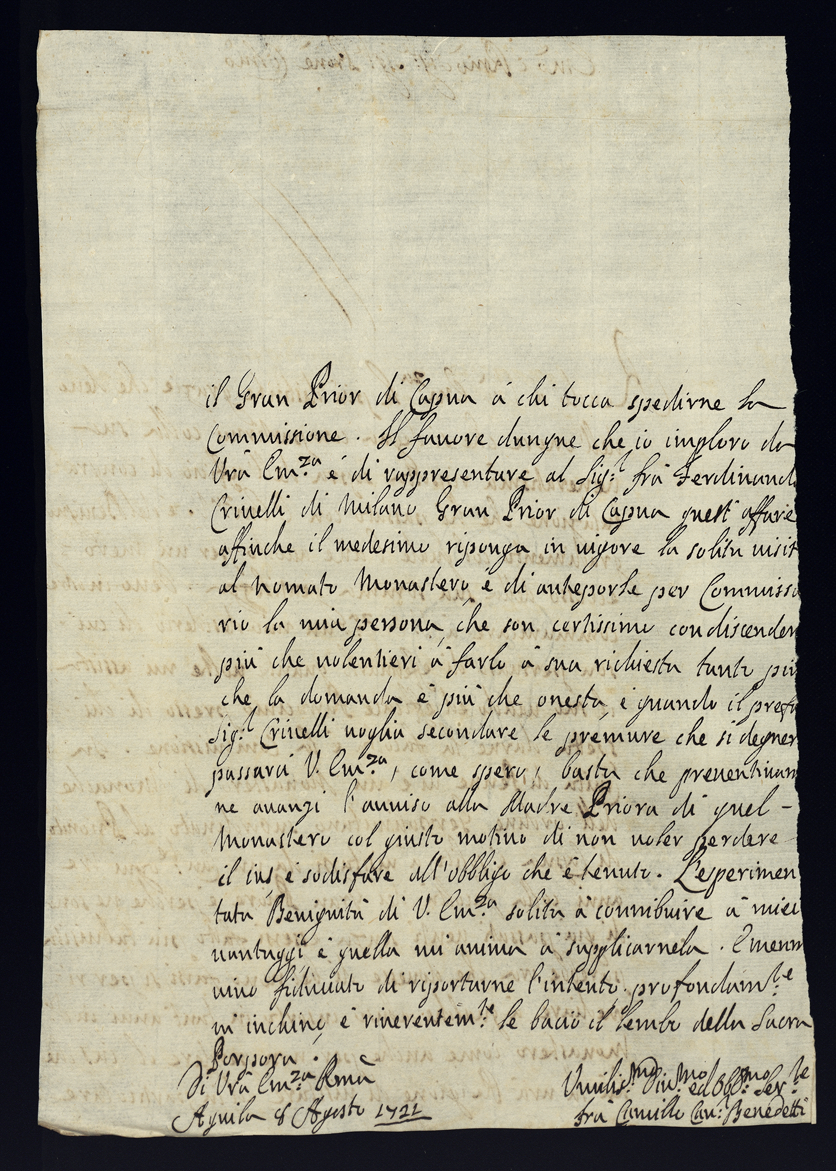 il Gran Prior di Capua á chi tocca spedirne la
Commissione. Il favore dunque che io imploro da
Vrã Em.za é di rappresentare al Sig.r frá Ferdinando
Crivelli di Milano Gran Prior di Capua quest'affare
affinche il medesimo riponga in vigore la solita visit
al nomato Monastero é di anteporle per Commissa
rio la mia persona, che son certissimo condiscender
piú che volentieri á farlo á sua richiesta tanto piu
che la domanda é piú che onesta, é quando il prefa
Sig.r Crivelli voglia secondare le premure che si degner
passarci V. Em.za, come spero, basta che preventivam
ne avanzi l'avviso alla Madre Priora di quel-
Monastero col giusto motivo di non voler perdere
il ius, é sodisfare all'obbligo che é tenuto. L'esperimen
tata Benignitá di V. Em.za solita á contribuire á miei
vantaggi é quella mi anima á supplicarnela.
vivo fiduciato di riportarne l'intento profondam.te
m'inchino, é riverentem.te le bacio il lembo della Sacra
Porpora.
Di Vrã Em.za Rma
Umilis.mo Div.mo ed Obb.mo Ser.te
Aquila 8 Agosto 1721
frá Camillo Cav. Benedetti